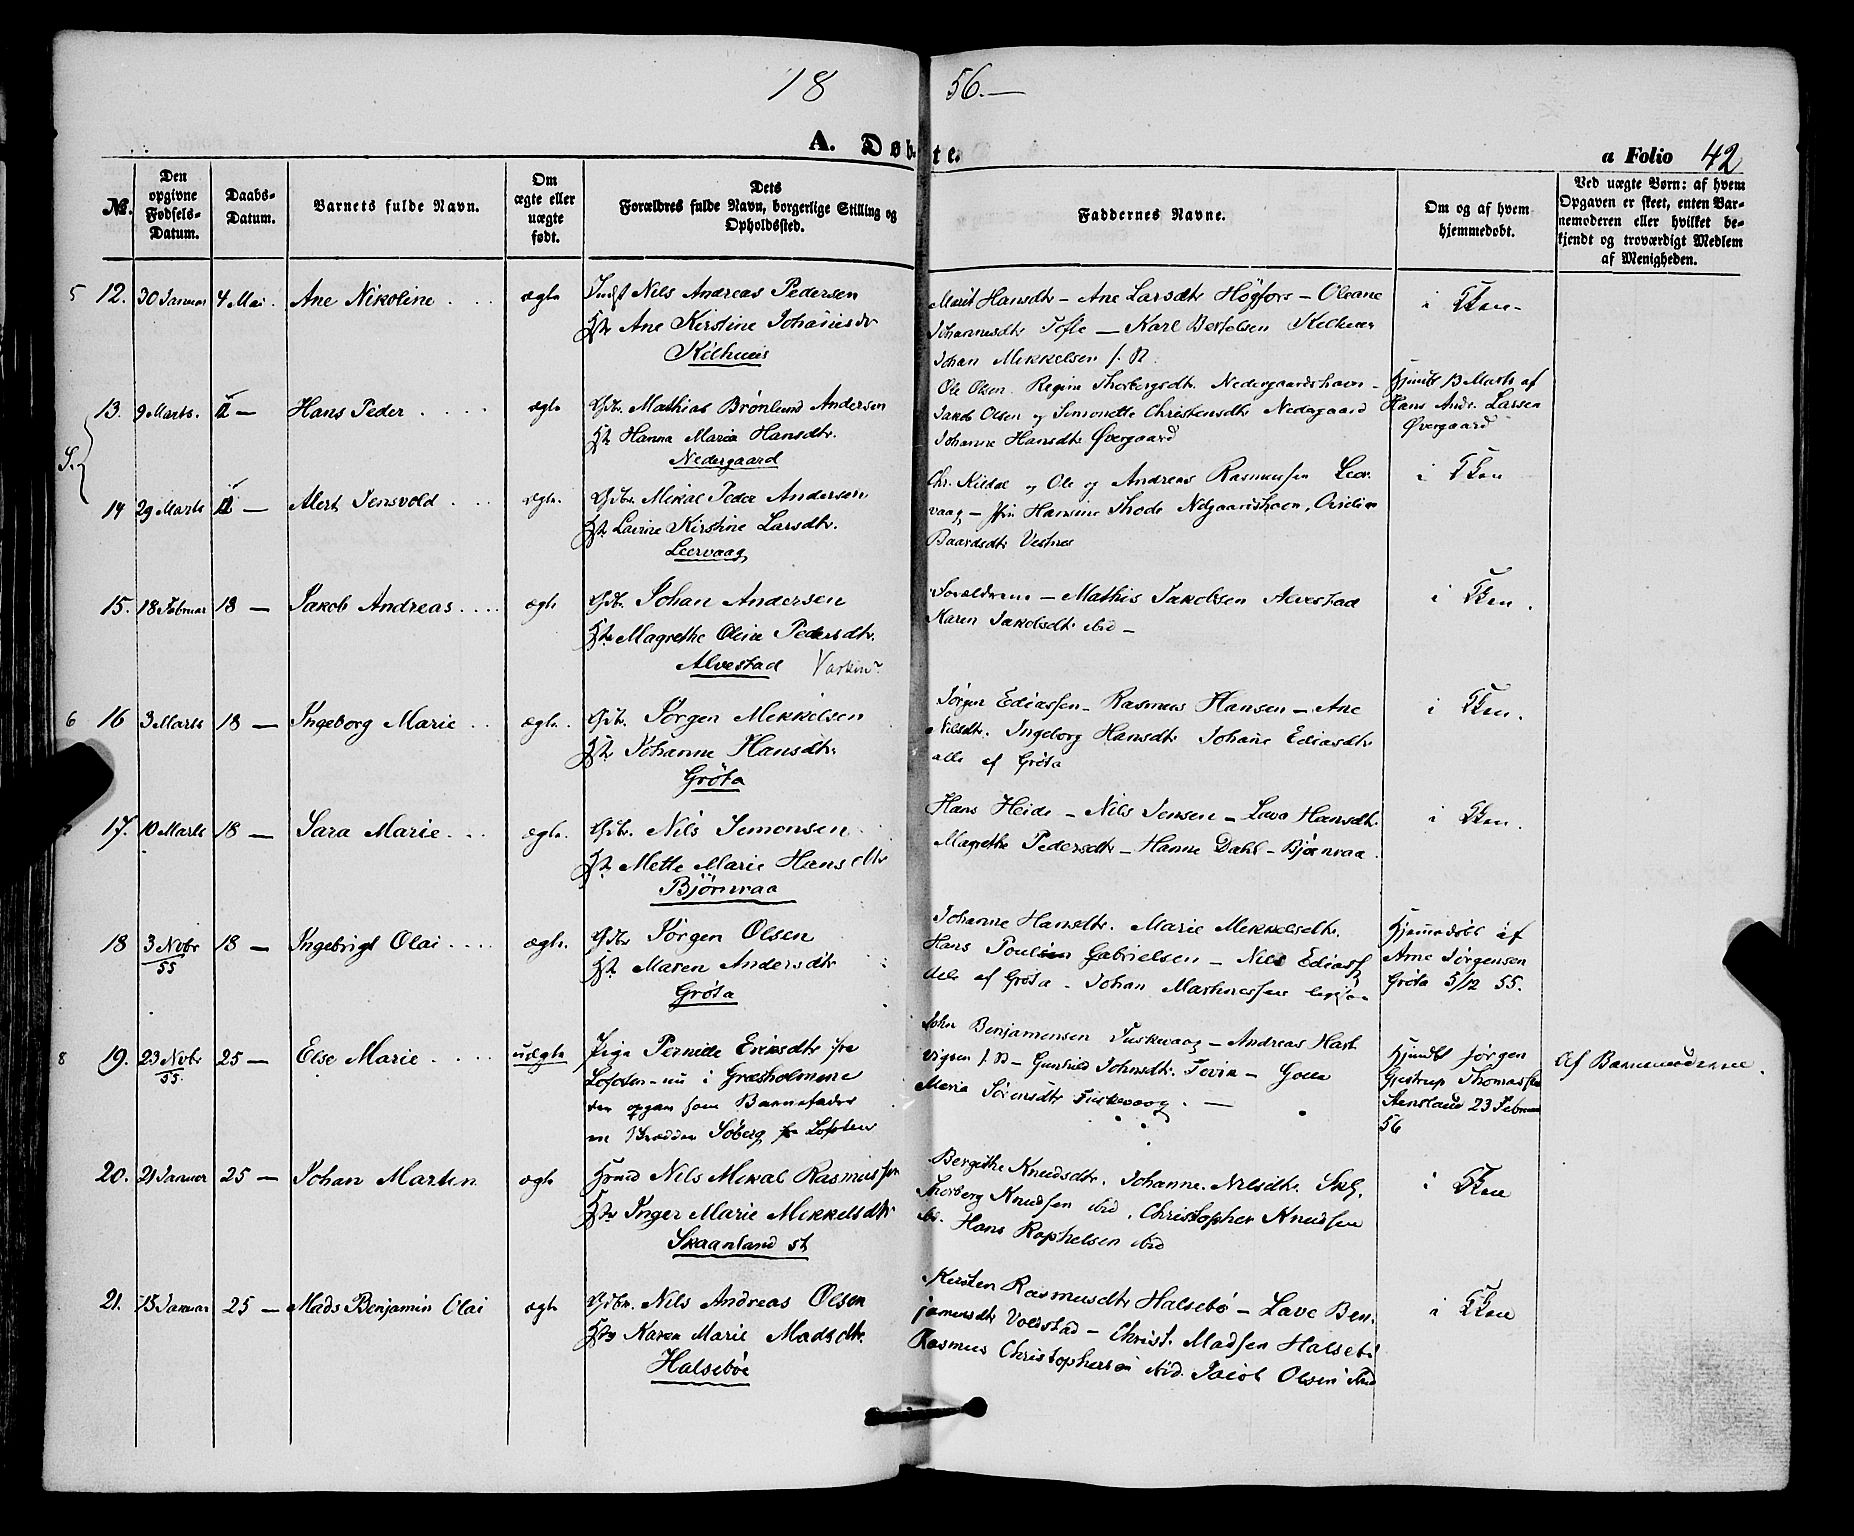 18 56.—
A. Døbte.
a Folio 42
No. | Den opgivne Fødsels-Datum. | Daabs-Datum. | Barnets fulde Navn. | Om ægte eller uægte født. | Dets Forældres fulde Navn, borgerlige Stilling og Opholdssted. | Faddernes Navne. | Om og af hvem hjemmedøbt. | Ved uægte Børn: af hvem Opgaven er skeet, enten Barnemoderen eller hvilket bekjendt og troværdigt Medlem af Menigheden.
5 12. 30 Januar 4 Mai. Ane Nikoline ægte Nils Andreas Pedersen
Ane Kirstine Johannsdr
Kilhuus
Marit Hansdtr – Ane Larsdtr Högfors – Oleane
Johannesdtr Tofte – Karl Bertelsen
Johan Mikkelsen
i Kken
S. 13. 9 Marts. II – Hans Peder ægte Gdbr. Mathias Brønlund Andersen
Hst Hanna Maria Hansdtr.
Nedergaard
Ole Olsen Regine Thorbergsdtr. Nedergaardshavn –
Jakob Olsen og Simonette Christensdtr Nedegaard
Johanne Hansdtr Øvergaard
Hjmdbt 13 Marts af
Hans Andr. Larsen
Øvergaard
14 29 Marts II – Alert Jensvold ægte. Gdbr. Mikal Peder Andersen
Hst Lavine Kirstine Larsdtr.
Leervaag
Chr. Kildal og Ole og Andreas Rasmussen Leer
vaag – Hansine Thode
Baardsdtr Vestnes
i Kken
15. 18 Februar 18 – Jakob Andreas ægte Gdbr. Johan Andersen
Hst Magrethe Oline Pedersdtr.
Alvestad
Forældrene – Mathis Jakobsen Alvestad
Karen Jakobsdtr ibid –
i Kken.
6 16 3 Marts 18 – Ingeborg Marie ægte. Gdbr. Jörgen Mikkelsen
Hst Johanne Hansdtr.
Gröta
Jörgen Ediassen – Rasmus Hansen – Ane
Nilsdtr. Ingeborg Hansdtr Johane Ediasdtr
alle af Gröta
i Kken.
17. 10 Marts 18 – Sara Marie ægte. Gdbr. Nils Simonsen
Hst Mette Marie Hansdtr
Björnraa
Hans Heide – Nils Jensen – Lava Hansdtr.
Magrethe Pedersdtr – Hanne Dahl – Bjørnraa.
i Kken.
18 3 Novbr 55 18 – Ingebrigt Olai ægte. Gdbr Jörgen Olsen
Hst Maren Andersdtr
Gröta
Johanne Hansdtr. Marie Mikkelsdtr.
Hans Poulsen Gabrielsen – Nils Ediass
alle af Gröta – Johan Martinessen
Hjemmedöbt af
Arne Jörgensen
Gröta 5/12 55.
8 19. 23 Novbr 55. 25 – Else Marie uægte Pige Pernille Eriksdtr fra
Lofoten – nu i Græsholmene
der opgav som Barnefader
Söberg fra Lofoten
John Benjamensen Tuskevaag – Andreas Hart
vigsen – Gunhild Johnsdtr.
Maria Sörensdtr Tuskevaag. –
Hjmdbt Jörgen
Gjestrup Thomassen
Stensland 23 Februar
56
Af Barnemoderen.
20. 21 Januar 25 – Johan Martin ægte Nils Mikal Rasmussen
Hst Inger Marie Mikkelsdtr
Skaanland st
Bergithe Knudsdtr. Johanne Nilsdtr.
Thorberg Knudsen ibid, Christopher Knudsen
ib. Hans Raphelsen ibid
i Kken
21. 15 Januar 25 – Mads Benjamin Olai ægte Gdbr. Nils Andreas Olsen
Hst Karen Marie Madsdtr.
Halsebøe
Kirsten Rasmusdtr Halsebö – Lave Ben
jamensdtr Voldstad – Christ. Madsen Halsebö
Rasmus Christophersen ibid. Jacob Olsen ibid
i Kken